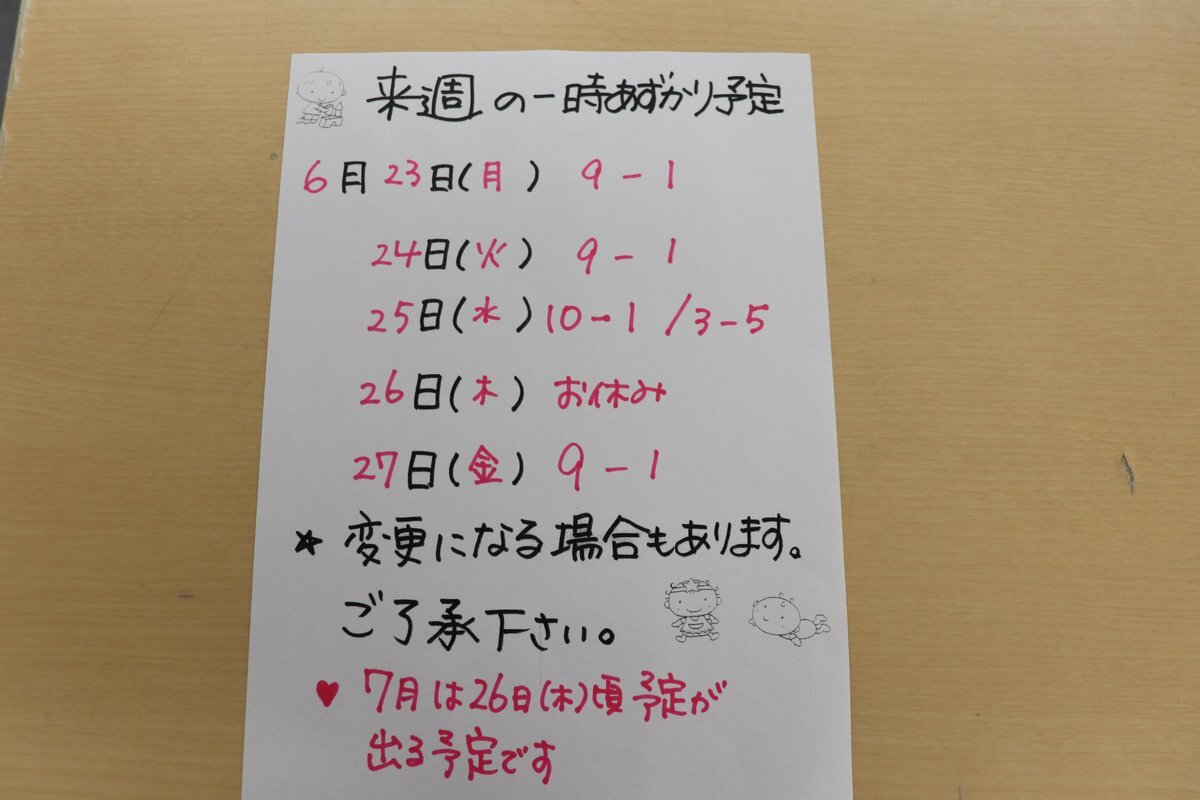 来週の一時あずかり予定
6月23日(月) 9-1
24日(火) 9-1
25日(水) 10-1 /3-5
26日(木) お休み
27日(金) 9-1
★ 変更になる場合もあります。
ご了承下さい。
♥ 7月は26日(木)頃予定が
出る予定です